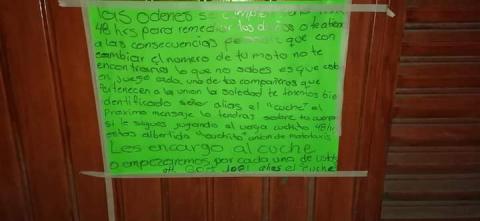 las odenes se cumplen
48 hrs para remediar los daños o te atien
a las consecuencias que con
cambiar el numero de tu moto no te
encontraria lo que no sabes es que esto
en juego cada uno de tus compañeros que
Pertenecen a la union la soledad te tenemos bie
identificado señor alias el "cuche" el
Proximo mensaje lo tendras sobre tu cuerpo
si le sigues jugando al verga cuchito 48 hr
estas albertido "cuchito" union de mototaxis
Les encargo al cuche
o empezaremos por cada uno de ustds
att. alias el cuche